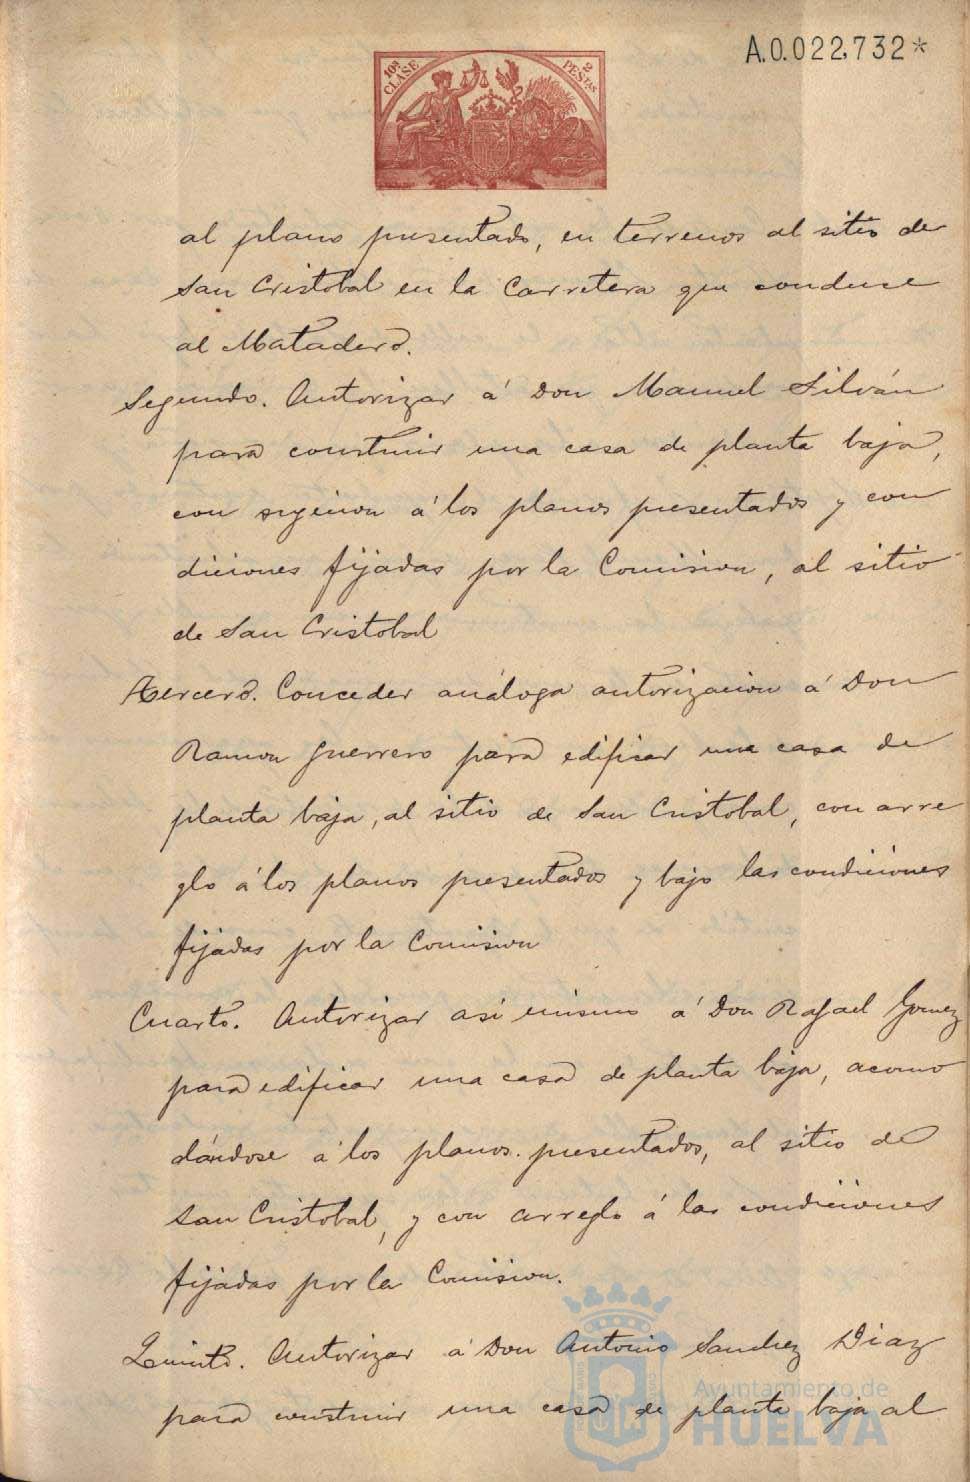 A.0.022,732*
10ª CLASE
2 PESTAS
al plano presentado, en terrenos al sitio de
San Cristobal en la Carretera que conduce
al Matadero.
Segundo. Autorizar á Don Manuel Silván
para construir una casa de planta baja,
con sugecion á los planos presentados y con
diciones fijadas por la Comision, al sitio
de San Cristobal
Tercero. Conceder análoga autorizacion á Don
Ramon Guerrero para edificar una casa de
planta baja, al sitio de San Cristobal, con arre
glo á los planos presentados y bajo las condiciones
fijadas por la Comision
Cuarto. Autorizar asi mismo á Don Rafael Gomez
para edificar una casa de planta baja, acomo
dándose á los planos presentados, al sitio de
San Cristobal, y con arreglo á las condiciones
fijadas por la Comision.
Quinto. Autorizar á Don Antonio Sanchez Diaz
para construir una casa de planta baja al
Ayuntamiento de
HUELVA